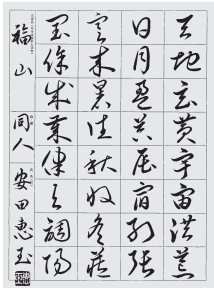 天地玄黄宇宙洪荒
日月盈昃辰宿列張
寒来暑往秋収冬蔵
閏餘成歳律呂調陽
福山 同人 安田惠玉